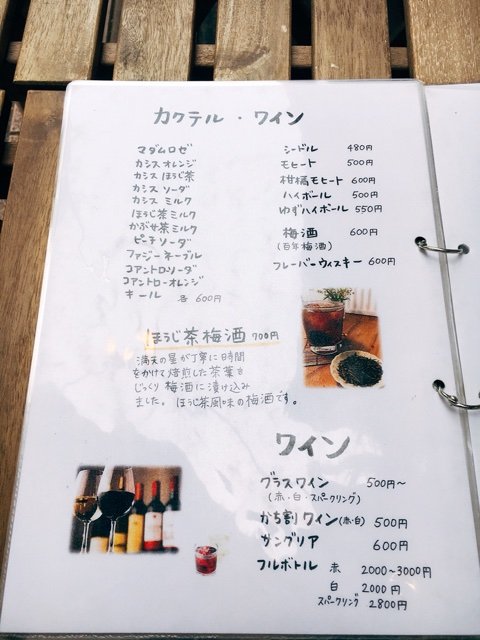 カクテル・ワイン
マダムロゼ
カシスオレンジ
カシスほうじ茶
カシスソーダ
カシスミルク
ほうじ茶ミルク
かぶせ茶ミルク
ピーチソーダ
ファジーネーブル
コアントローソーダ
コアントローオレンジ
キール 各600円
シードル 480円
モヒート 500円
柑橘モヒート 600円
ハイボール 500円
ゆずハイボール 550円
梅酒 600円
(百年梅酒)
フレーバーウィスキー 600円
ほうじ茶梅酒 700円
満末の星が丁寧に時間
をかけて焙煎した茶葉を
じっくり梅酒に漬け込み
ました。ほうじ茶風味の梅酒です。
ワイン
グラスワイン 500円~
(赤・白・スパークリング)
かち割ワイン(赤・白) 500円
サングリア 600円
フルボトル 赤 2000~3000円
白 2000円
スパークリング 2800円